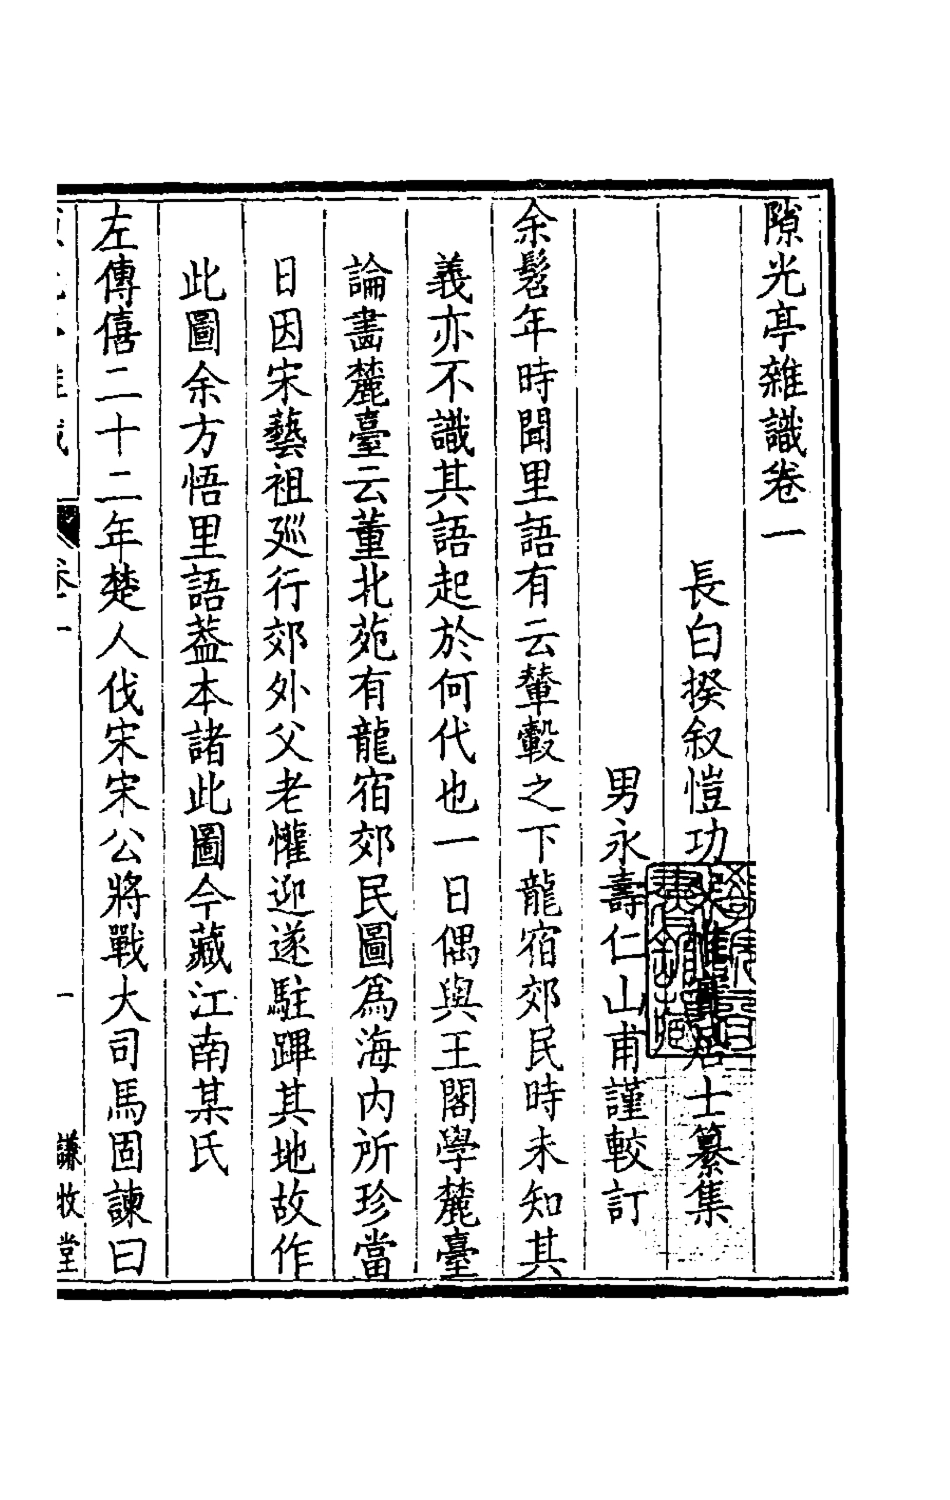 隙光亭雜識卷一
長白揆叙愷功 惟實居士纂集
男永壽仁山甫謹較訂
余髫年時聞里語有云輦轂之下龍宿郊民時未知其
義亦不識其語起於何代也一日偶與王閣學麓臺
論畵麓臺云董北苑有龍宿郊民圖爲海内所珍當
日因宋藝祖廵行郊外父老懽迎遂駐蹕其地故作
此圖余方悟里語葢本諸此圖今藏江南某氏
左傳僖二十二年楚人伐宋宋公將戰大司馬固諫曰
卷一
一
謙牧堂